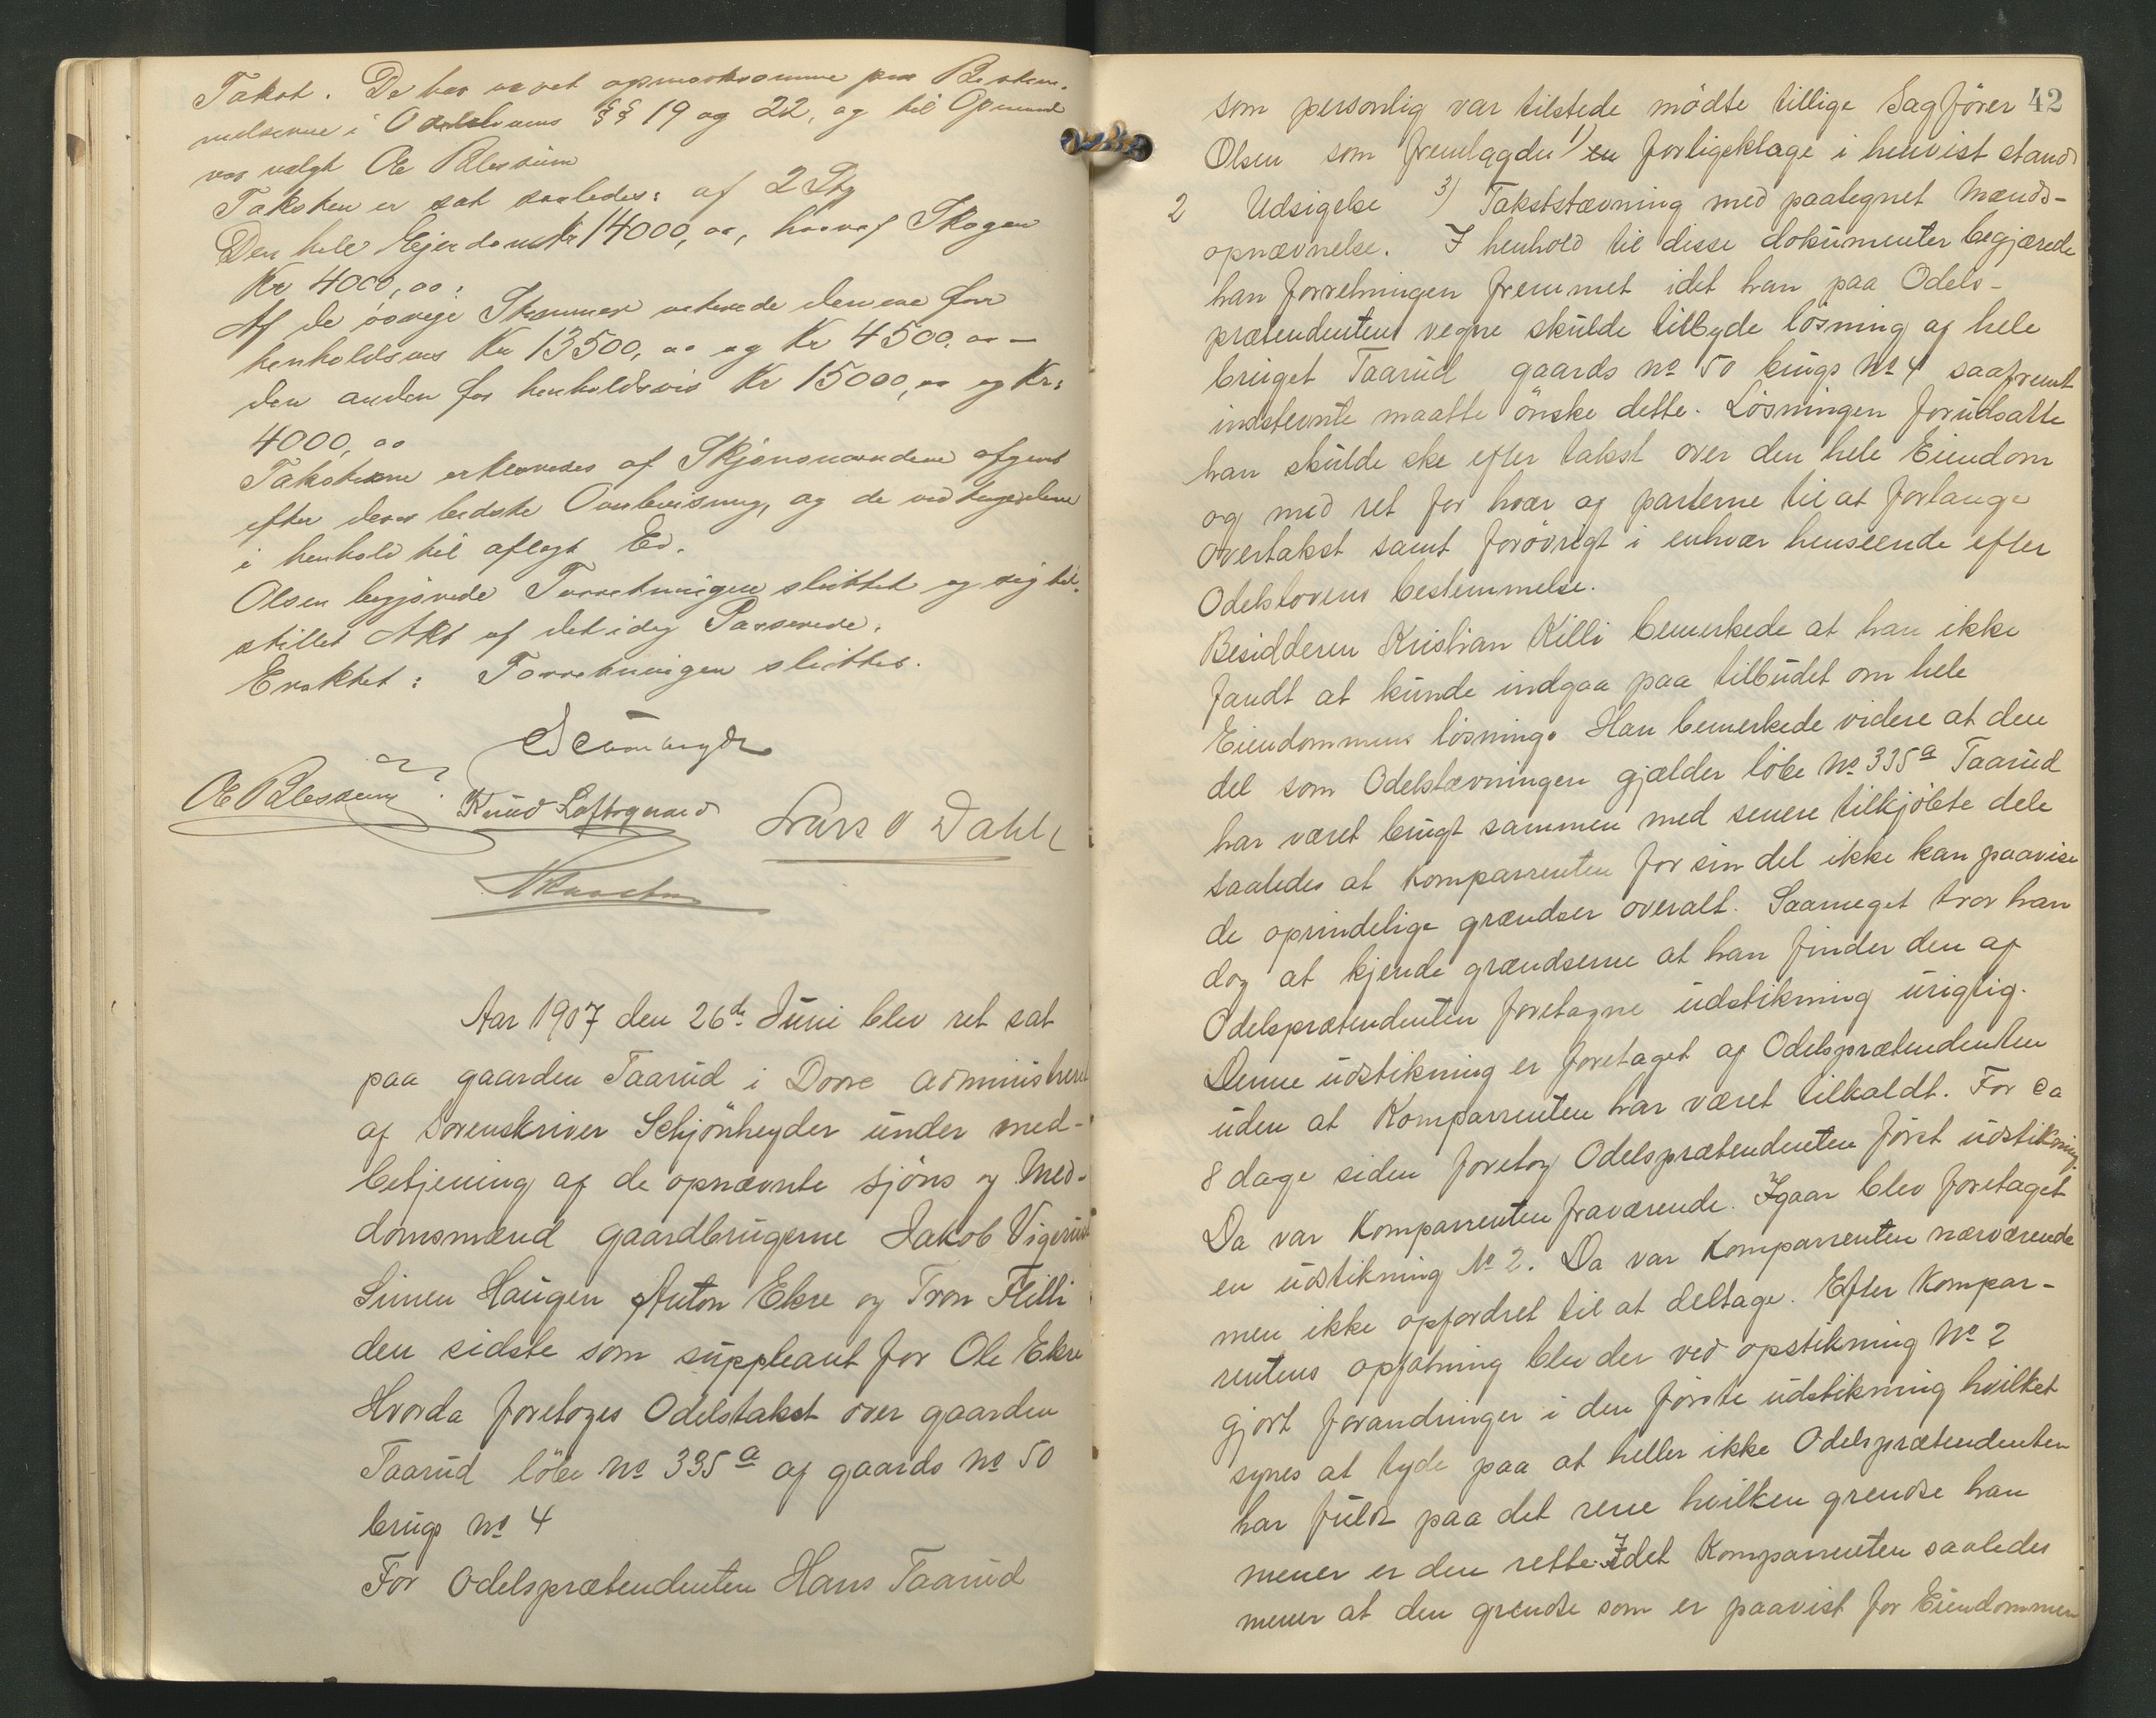 Takst. De har været opmærksomme paa Bestem-
melserne i Odelslovens §§ 19 og 22, og til Opmand
var valgt Ole Blessum
Taksten er sat saaledes: af 2
Den hele Ejendom Kr 14000,00, hvoraf Skogen
Kr 4000,00.
Af de øvrige Stemmer den ene for
henholdsvis Kr 13500,00 og Kr 4500.00 —
den anden for henholdsvis Kr 15000,00 og Kr:
4000,00
Taksterne erklæredes af Skjønsmændene afgivet
efter deres bedste Overbevisning, og de vedtoges dem
i henhold til aflagt Ed.
Olsen begjærede Forretningen sluttet og sig til-
stillet Akt af det idag Passerede.
Eraktet: Forretningen sluttes.
Schønheyder
Ole Blessum
Knud Loftsgaard
Lars O Dahle
Aar 1907 den 26de Juni blev ret sat
paa gaarden Taarud i Dovre administreret
af Sorenskriver Schjönheyder under med-
betjening af de opnævnte sjöns og Med-
domsmænd gaardbrugerne Jakob Vigerust
Simen Haugen Anton Ekre og Tron Flilli
den sidste som suppleant for Ole Ekre
Hvorda foretoges Odelstakst over gaarden
Taarud löbe No 335 a af gaards No 50
brugs No 4
For Odelsprætendenten Hans Taarud
42
som personlig var tilstede mödte tillige Sagförer
Olsen som fremlagde 1) en forligsklage i henvist stand
2 Udsigelse 3) Takststævning med paategnet Mænds-
opnævnelse. I henhold til disse dokumenter begjærede
han forretningen fremmet idet han paa Odels-
prætendentens vegne skulde tilbyde lösning af hele
bruget Taarud gaards no 50 brugs No 4 saafremt
indstevnte maatte önske dette. Lösningen forudsatte
han skulde ske efter takst over den hele Eiendom
og med ret for hver af parterne til at forlange
overtakst samt forövrigt i enhver henseende efter
Odelslovens bestemmelse.
Besidderen Kristian Killi bemerkede at han ikke
fandt at kunde indgaa paa tilbudet om hele
Eiendommens lösning. Han bemerkede videre at den
del som Odelstævningen gjælder löbe No 335 a Taarud
har været brugt sammen med senere tilkjöbte dele
saaledes at Komparenten for sin del ikke kan paavise
de oprindelige grændser overalt. Saameget tror han
dog at kjende grændserne at han finder den af
Odelsprætendenten foretagne udstikning urigtig.
Denne udstikning er foretaget af Odelsprætendenten
uden at Komparrenten har været tilkaldt. For ca
8 dage siden foretog Odelsprætendenten först udstikning.
Da var Komparrenten fraværende. Igaar blev foretaget
en udstikning No 2. Da var Komparrenten nærværende
men ikke opfordret til at deltage. Efter Kompar-
rentens opfatning blev der ved opstikning No 2
gjort forandringer i den förste udstikning hvilket
synes at tyde paa at heller ikke Odelsprætendenten
har fuldt paa det rene hvilken grendse han
mener er den rette. Idet Komparrenten saaledes
mener at den grendse som er paavist for Eiendommen